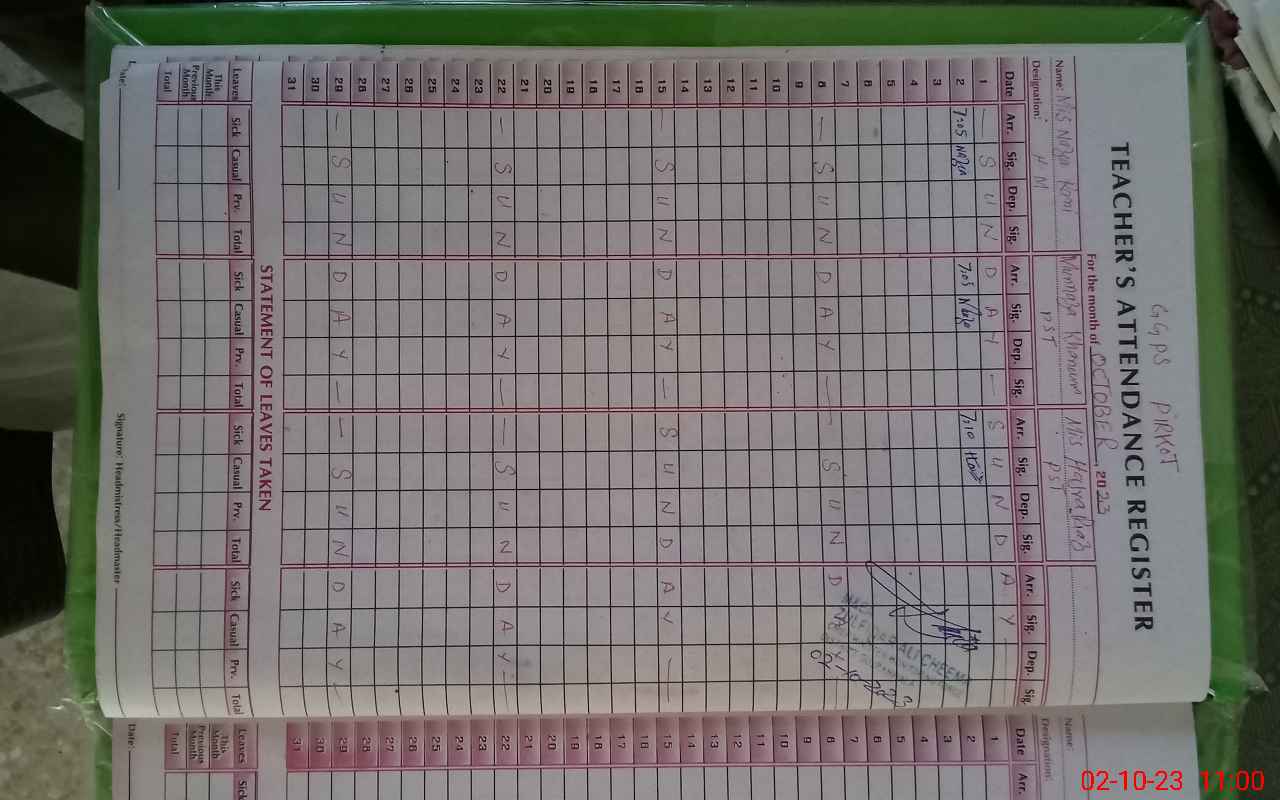 GGPS PIRKOT
TEACHER'S ATTENDANCE REGISTER
For the month of OCTOBER, 2023
Name: Mis Nazea Munnaza Khanum Mis Haiyqa Riaz
Designation: H M PST PST
Date Arr. Sig. Dep. Sig. Arr. Sig. Dep. Sig. Arr. Sig. Dep. Sig. Arr. Sig. Dep. Sig.
1 — S U N D A Y — S U N D A Y
2 7:05 Nazea 7:05 7:10
3
4
5
6
7
8 — S U N D A Y — — S U N D A Y
9
10
11
12
13
14
15 — S U N D A Y — S U N D A Y — —
16
17
18
19
20
21
22 — S U N D A Y — — S U N D A Y —
23
24
25
26
27
28
29 — S U N D A Y — — S U N D A Y —
30
31
ALI CHEEMA
02-10-2023
STATEMENT OF LEAVES TAKEN
Leaves Sick Casual Prv. Total Sick Casual Prv. Total Sick Casual Prv. Total Sick Casual Prv. Total
This Month
Previous Month
Total
Date: Signature: Headmistress/Headmaster
Name:
Designation:
Date Arr.
1
2
3
4
5
6
7
8
9
10
11
12
13
14
15
16
17
18
19
20
21
22
23
24
25
26
27
28
29
30
31
Leaves Sick
This Month
Previous Month
Total
Date:
02-10-23 11:00